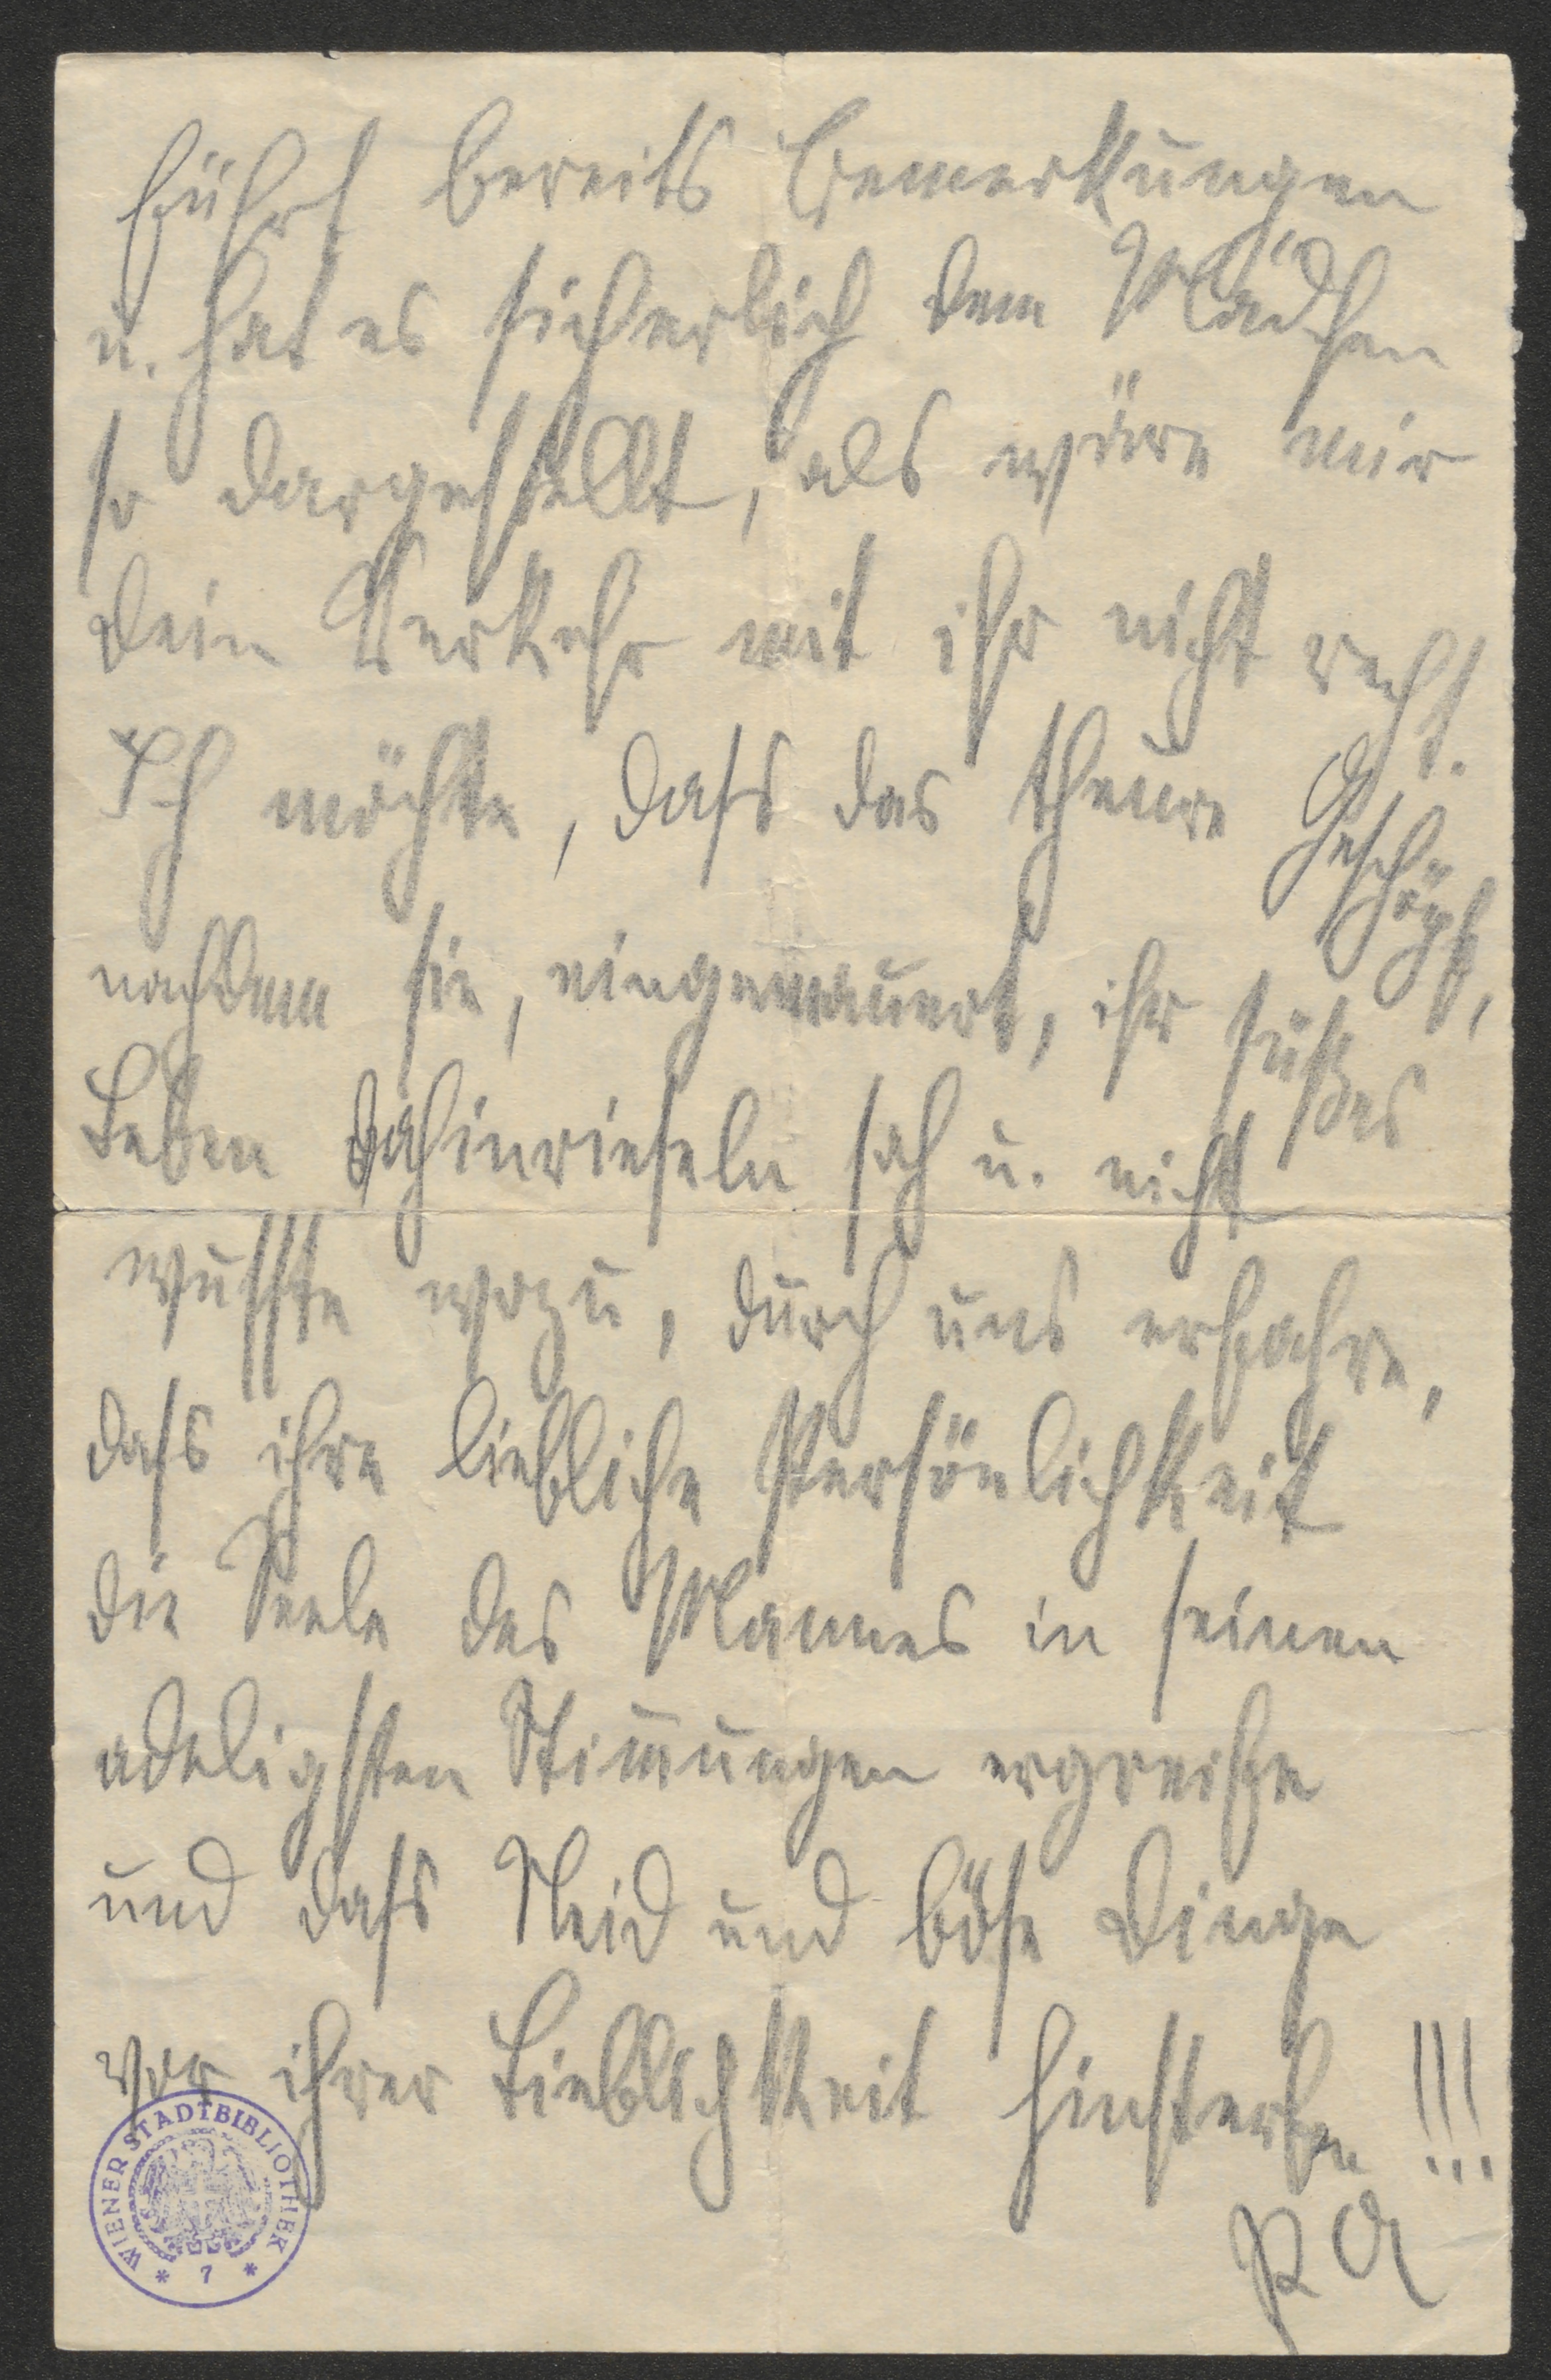 führt bereits Bemerkungen
u. hat es sicherlich dem Mädchen
so dargestellt, als wäre mir
Dein Verkehr mit ihr nicht recht.
Ich möchte, dass das theure Geschöpf,
nachdem sie, eingemauert, ihr süßes
Leben dahinrieseln sah u. nicht
wusste wozu, durch uns erfahre,
dass ihre liebliche Persönlichkeit
die Seele des Mannes in seinen
adeligsten Stimmungen ergreife
und dass Neid und böse Dinge
vor ihrer Lieblichkeit hinsterben !!!
PA
WIENER STADTBIBLIOTHEK
* 7 *